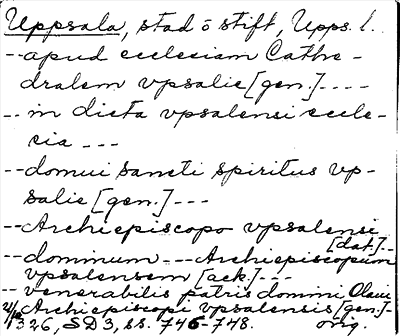 Uppsala, stad o stift, Upps. l.
-- apud ecclesiam Cathe-
dralem vpsalie [gen.]. ---
-- in dicta vpsalensi eccle-
cia ---
-- domui sancti spiritus vp-
salie [gen.] ---
-- Archiepiscopo vpsalensi
[dat.] --
-- dominum --- Archiepiscopum
vpsalensem [ack.]. ---
-- venerabilis patris domini Olaui
Archiepiscopi vpsalensis [gen.] --
1326, SD3, ss. 746-748. orig.